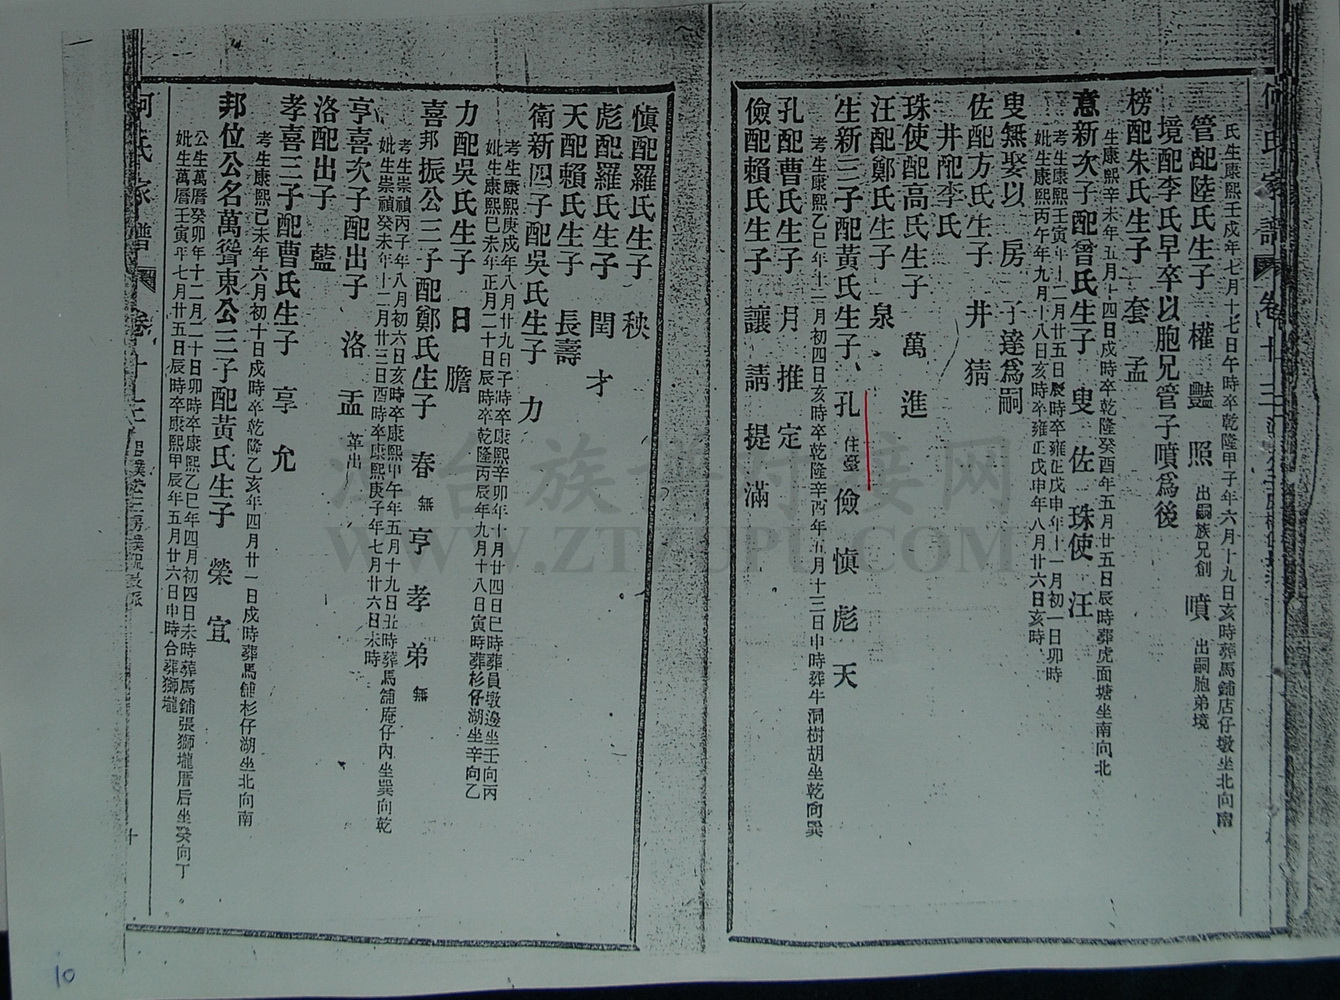 何氏家譜 卷十三
氏生康熙壬戌年七月十七日午時卒乾隆甲子年六月十九日亥時葬馬鋪店仔墩坐北向南
管配陸氏生子 權 豔 照 出嗣族兄創 噴 出嗣胞弟境
境配李氏早卒以胞兄管子噴為後
榜配朱氏生子 套 孟
生康熙辛未年五月十四日戌時卒乾隆癸酉年五月廿五日辰時葬虎面塘坐南向北
意新次子配曾氏生子 叟 佐 珠使 汪
考生康熙壬寅年十二月廿五日辰時卒雍正戊申年十一月初一日卯時
妣生康熙丙午年九月十八日亥時卒雍正戊申年八月廿六日亥時
叟無娶以 房 子達為嗣
佐配方氏生子 井 猜
井配李氏
珠使配高氏生子 萬 進
汪配鄭氏生子 泉
生新三子配黃氏生子 孔 住臺 儉 慎 彪 天
考生康熙乙巳年十二月初四日亥時卒乾隆辛酉年五月十三日申時葬牛洞樹胡坐乾向巽
孔配曹氏生子 月 推 定
儉配賴氏生子 讓 請 提 滿
慎配羅氏生子 秧
彪配羅氏生子 閏 才
天配賴氏生子 長壽
衛新四子配吳氏生子 力
考生康熙庚戌年八月廿九日子時卒康熙辛卯年十月廿四日巳時葬員墩邊坐壬向丙
妣生康熙己未年正月二十日辰時卒乾隆丙辰年九月十八日寅時葬杉仔湖坐辛向乙
力配吳氏生子 日 膽
喜邦振公二子配鄭氏生子 春 無 亨 孝 弟 無
考生崇禎丙子年八月初六日亥時卒康熙甲午年五月十九日丑時葬馬鋪庵仔內坐巽向乾
妣生崇禎癸未年十二月廿三日酉時卒康熙庚子年七月廿六日未時
亨喜次子配出子 洛 孟 革出
洛配出子 藍
孝喜三子配曹氏生子 享 允
考生康熙己未年六月初十日戌時卒乾隆乙亥年四月廿一日戌時葬馬鋪杉仔湖坐北向南
邦位公名萬聳東公三子配黃氏生子 榮 宜
公生萬曆癸卯年十二月二十日卯時卒康熙乙巳年四月初四日未時葬馬鋪張獅壠厝后坐癸向丁
妣生萬曆壬寅年七月廿五日辰時卒康熙甲辰年五月廿六日申時合葬獅壠
何氏家譜 卷十三
十
10
WWW.ZTZUPU.COM